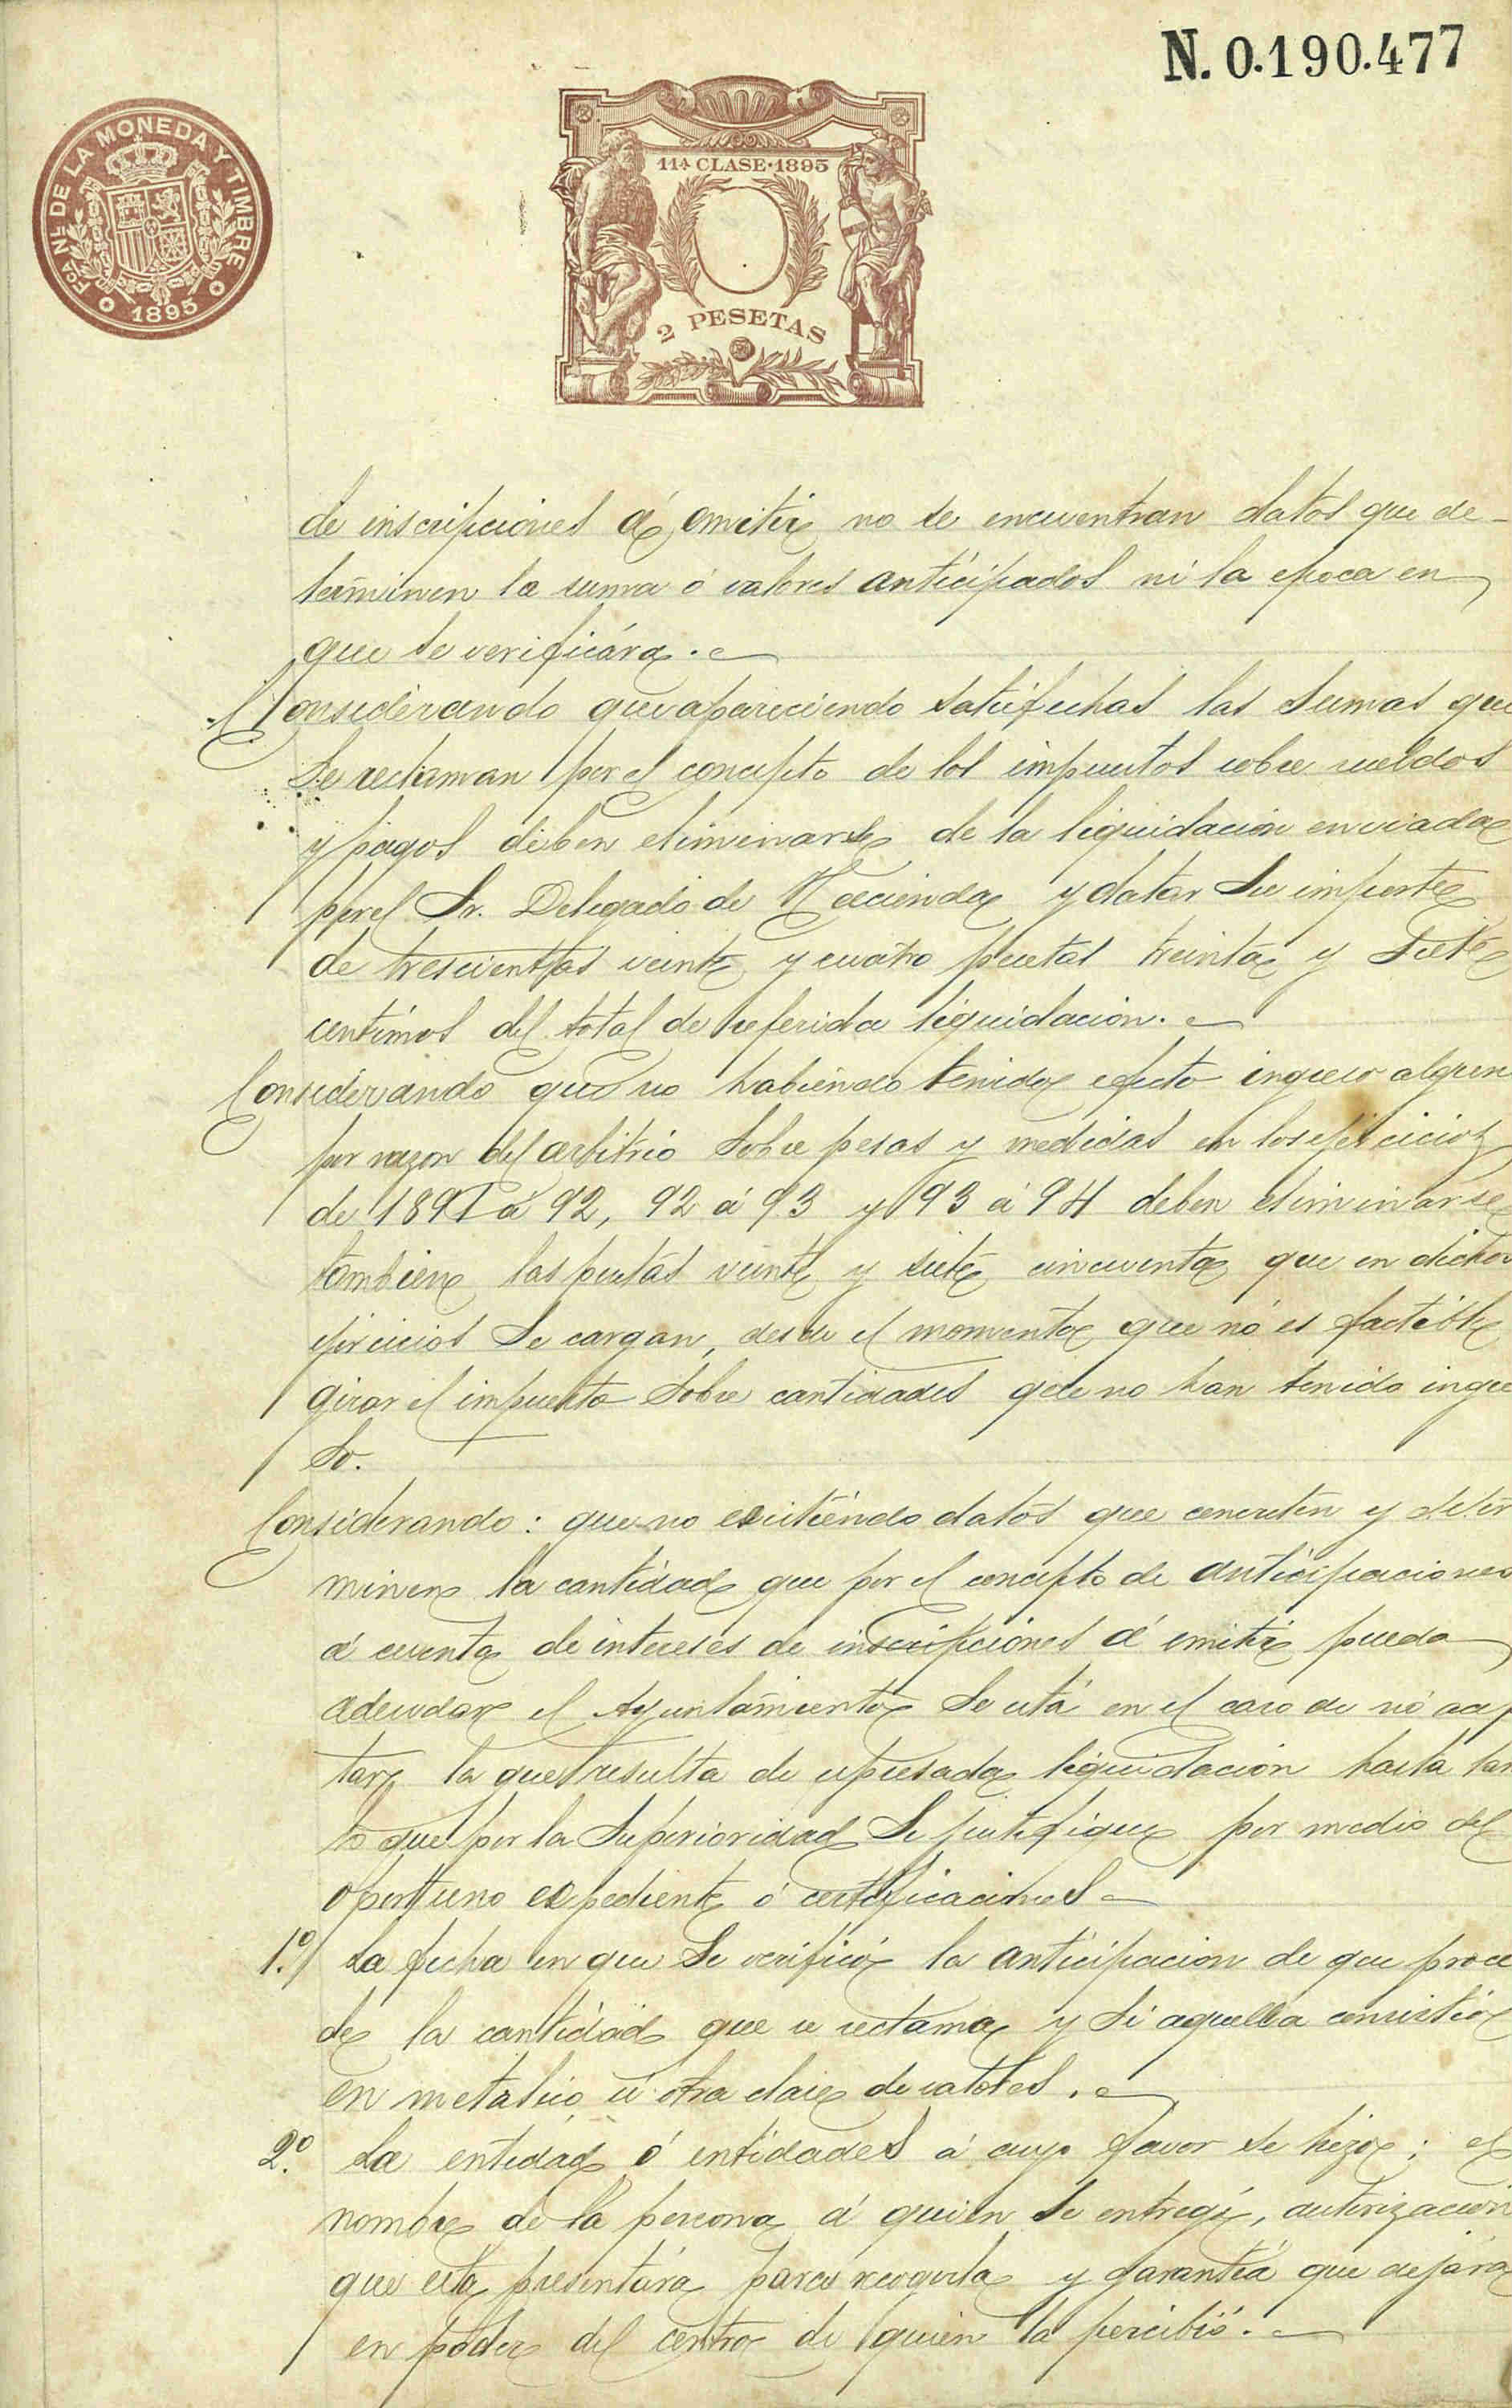 N. 0.190.477
FCA NL DE LA MONEDA Y TIMBRE
1895
11ª CLASE·1895
2 PESETAS
de inscripciones á emitir no se encuentran datos que de-
terminen la suma ó valores anticipados ni la epoca en
que se verificára.
Considerando que apareciendo satisfechas las sumas que
se reclaman por el concepto de los impuestos sobre sueldos
y pagos deben eliminarse de la liquidacion enviada
por el Sr. Delegado de Hacienda y datar su importe
de trescientas veinte y cuatro pesetas treinta y siete
centimos del total de referida liquidación.
Considerando que no habiendo tenido efecto ingreso algun
por razon del arbitrio sobre pesas y medidas en los ejercicios
de 1891 a 92, 92 á 93 y 93 á 94 deben eliminarse
tambien las pesetas veinte y siete cincuenta que en dichos
ejercicios se cargan, desde el momento que no es factible
girar el impuesto sobre cantidades que no han tenido ingre
so.
Considerando: que no existiendo datos que concreten y deter
minen la cantidad que por el concepto de anticipaciones
á cuenta de intereses de inscripciones á emitir pueda
adeudar el Ayuntamiento se está en el caso de no acep
tar la que resulta de expresada liquidacion hasta tan
to que por la Superioridad se justifique por medio del
oportuno expediente ó certificaciones
1.º La fecha en que se verificó la anticipacion de que proce
de la cantidad que se reclama y si aquella consistió
en metalico ú otra clase de valores.
2.º La entidad ó entidades á cuyo favor se hizo; el
nombre de la persona á quien se entregó, autorizacion
que esta presentára para recogerla y garantía que dejára
en poder del centro de quien la percibió.